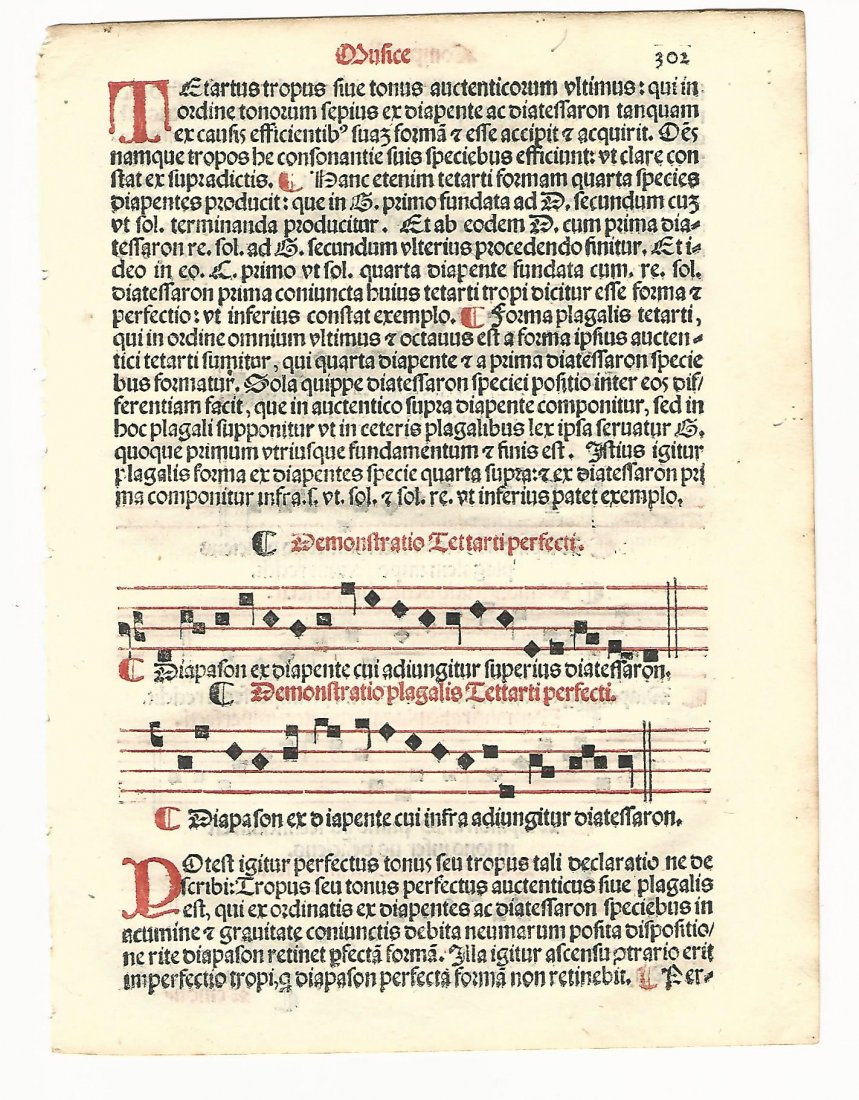 Musice 302
TEtartus tropus siue tonus auctenticorum vltimus: qui in
ordine tonorum sepius ex diapente ac diatessaron tanquam
ex causis efficientibꝰ suaꝫ formã ⁊ esse accipit ⁊ acquirit. Oẽs
namque tropos he consonantie suis speciebus efficiunt: vt clare con
stat ex supradictis. ¶ Hanc etenim tetarti formam quarta species
diapentes producit: que in G. primo fundata ad D. secundum cuꝫ
vt sol. terminanda producitur. Et ab eodem D. cum prima dia-
tessaron re. sol. ad G. secundum vlterius procedendo finitur. Et i-
deo in eo. C. primo vt sol. quarta diapente fundata cum. re. sol.
diatessaron prima coniuncta huius tetarti tropi dicitur esse forma ⁊
perfectio: vt inferius constat exemplo. ¶ Forma plagalis tetarti,
qui in ordine omnium vltimus ⁊ octauus est a forma ipsius aucten-
tici tetarti sumitur, qui quarta diapente ⁊ a prima diatessaron specie
bus formatur. Sola quippe diatessaron speciei positio inter eos dif/
ferentiam facit, que in auctentico supra diapente componitur, sed in
hoc plagali supponitur vt in ceteris plagalibus lex ipsa seruatur G.
quoque primum vtriusque fundamentum ⁊ finis est. Istius igitur
plagalis forma ex diapentes specie quarta supra:⁊ ex diatessaron pri
ma componitur infra.s. vt. sol. ⁊ sol. re. vt inferius patet exemplo.
¶ Demonstratio Tettarti perfecti.
¶ Diapason ex diapente cui adiungitur superius diatessaron.
¶ Demonstratio plagalis Tettarti perfecti.
¶ Diapason ex d iapente cui infra adiungitur diatessaron.
POtest igitur perfectus tonus seu tropus tali declaratio ne de
scribi: Tropus seu tonus perfectus auctenticus siue plagalis
est, qui ex ordinatis ex diapentes ac diatessaron speciebus in
acumine ⁊ grauitate coniunctis debita neumarum posita dispositio/
ne rite diapason retinet ꝑfectã formã. Illa igitur ascensu ꝯtrario erit
imperfectio tropi,q̃ diapason perfectã formã non retinebit. ¶ Per-